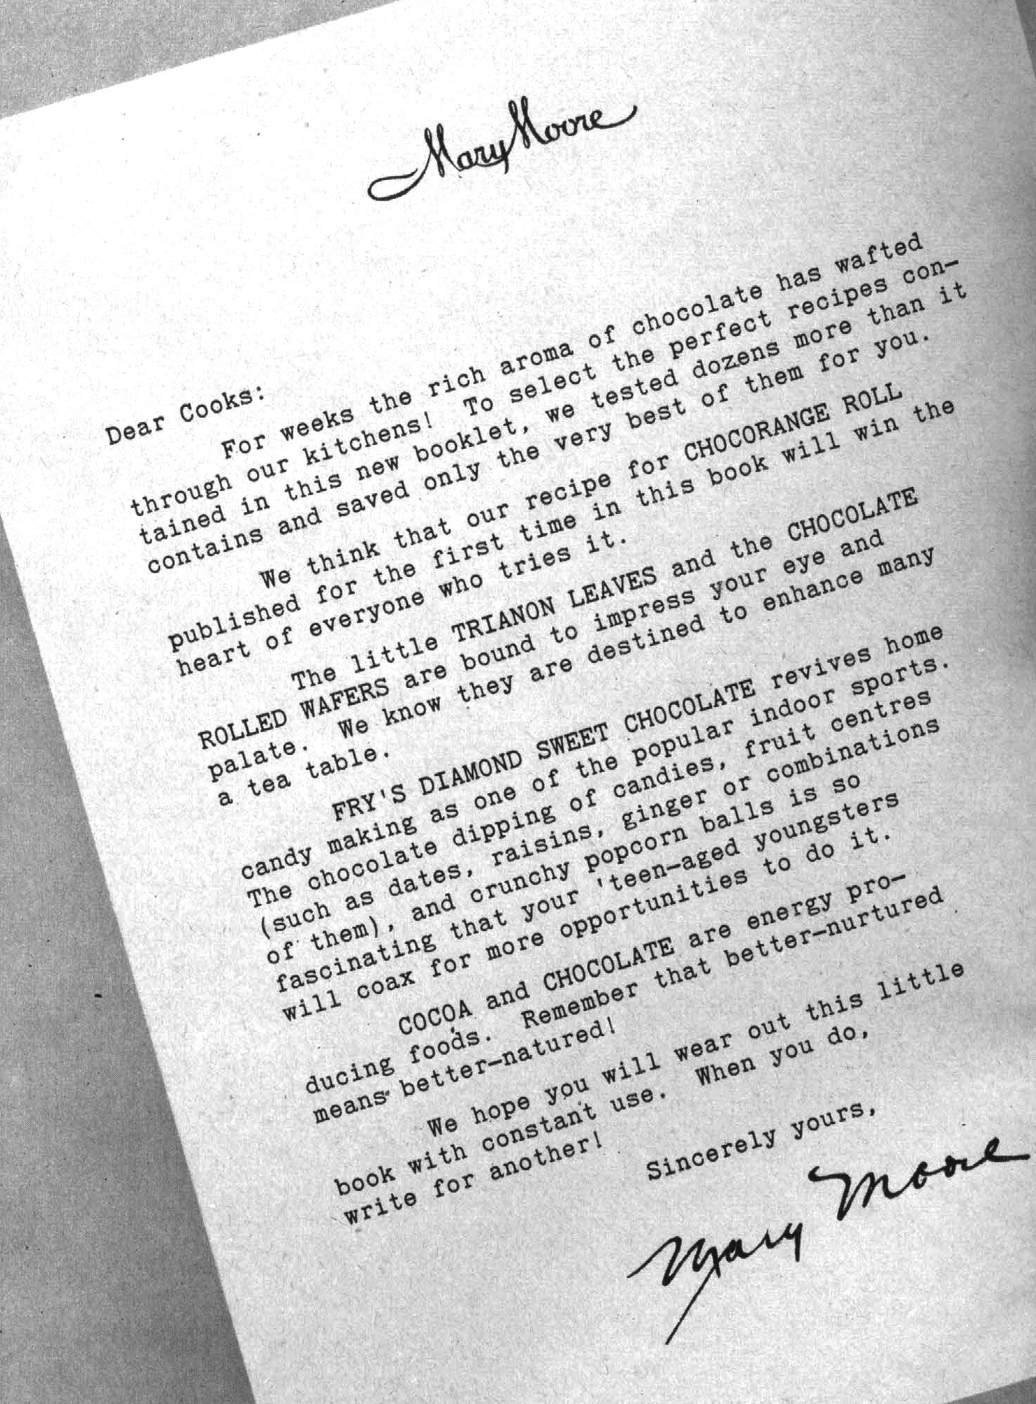 Mary Moore
Dear Cooks:
For weeks the rich aroma of chocolate has wafted
through our kitchens! To select the perfect recipes con-
tained in this new booklet, we tested dozens more than it
contains and saved only the very best of them for you.
We think that our recipe for CHOCORANGE ROLL
published for the first time in this book will win the
heart of everyone who tries it.
The little TRIANON LEAVES and the CHOCOLATE
ROLLED WAFERS are bound to impress your eye and
palate. We know they are destined to enhance many
a tea table.
FRY'S DIAMOND SWEET CHOCOLATE revives home
candy making as one of the popular indoor sports.
The chocolate dipping of candies, fruit centres
(such as dates, raisins, ginger or combinations
of them), and crunchy popcorn balls is so
fascinating that your 'teen-aged youngsters
will coax for more opportunities to do it.
COCOA and CHOCOLATE are energy pro-
ducing foods. Remember that better-nurtured
means better-natured!
We hope you will wear out this little
book with constant use. When you do,
write for another!
Sincerely yours,
Mary Moore